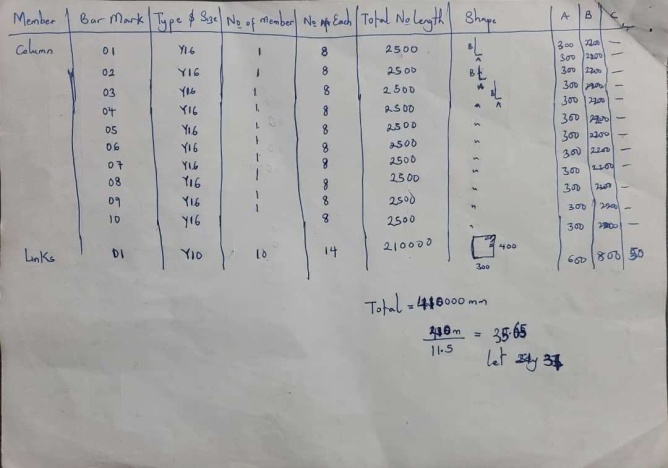 Member Bar Mark Type & Size No of member No of Each Total No Length Shape A B C
Column 01 Y16 1 8 2500 B A 300 2200 —
02 Y16 1 8 2500 B A 300 2200 —
03 Y16 1 8 2500 B A 300 2200 —
04 Y16 1 8 2500 " 300 2200 —
05 Y16 1 8 2500 " 300 2200 —
06 Y16 1 8 2500 " 300 2200 —
07 Y16 1 8 2500 " 300 2200 —
08 Y16 1 8 2500 " 300 2200 —
09 Y16 1 8 2500 " 300 2200 —
10 Y16 1 8 2500 " 300 2200 —
Links 01 Y10 10 14 210000 400 300 600 800 50
Total = 410000 mm
410m = 35.65
11.5
let